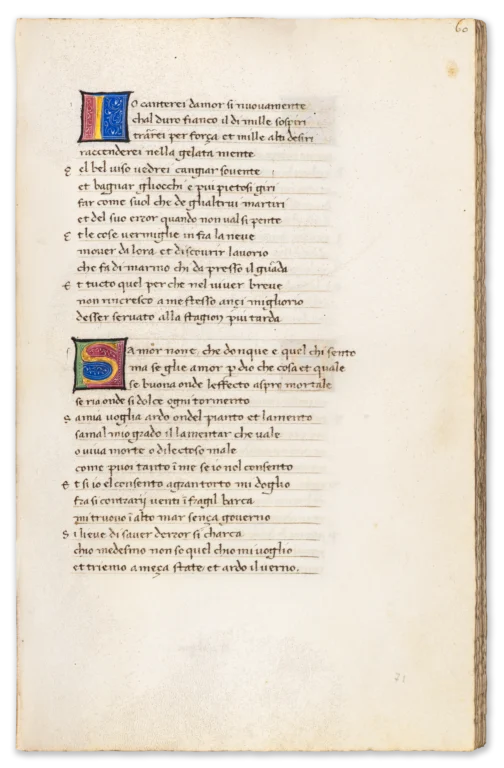 60
Io canterei damor si nuovamente
chal duro fianco il di mille sospiri
trarrei per força et mille alti desiri
raccenderei nella gelata mente
E l bel viso vedrei cangiar sovente
et bagnar gliocchi e piu pietosi giri
far come suol che de glialtrui martiri
et del suo error quando non val si pente
E t le cose vermiglie in fra la neve
mover da lora et discovrir lavorio
che fa di marmo chi da presso il guada
E t tucto quel per che nel viver breve
non rincresco a me stesso ançi mi glorio
desser servato alla stagion piu tarda
S amor none, che donque e quel chi sento
ma se glie amor p dio che cosa et quale
se buona onde leffecto aspro mortale
se ria onde si dolce ogni tormento
S a mia voglia ardo ondel pianto et lamento
samal mio grado il lamentar che vale
o viva morte o dilectoso male
come puoi tanto ī me se io nol consento
E t si io el consento a gran torto mi doglio
fra si contrarij venti ī fragil barca
mi truovo ī alto mar sença governo
S i lieve di saver derror si charca
chio medesmo non so quel chio mi voglio
et triemo a meça state et ardo il verno.